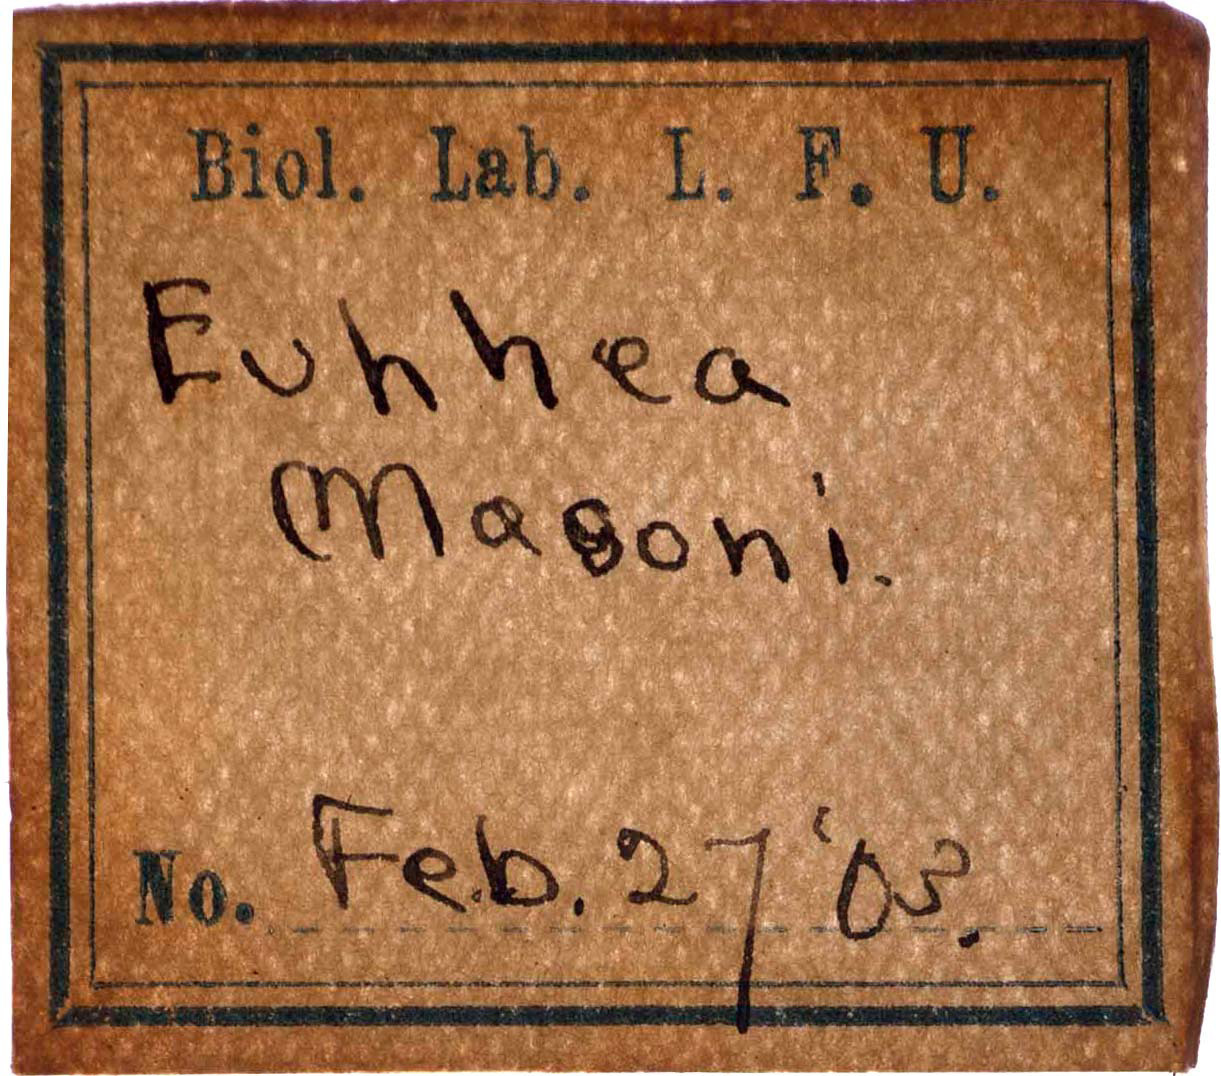 Biol. Lab. L. F. U.
Euhhea
Masoni.
No. Feb. 27 '03.